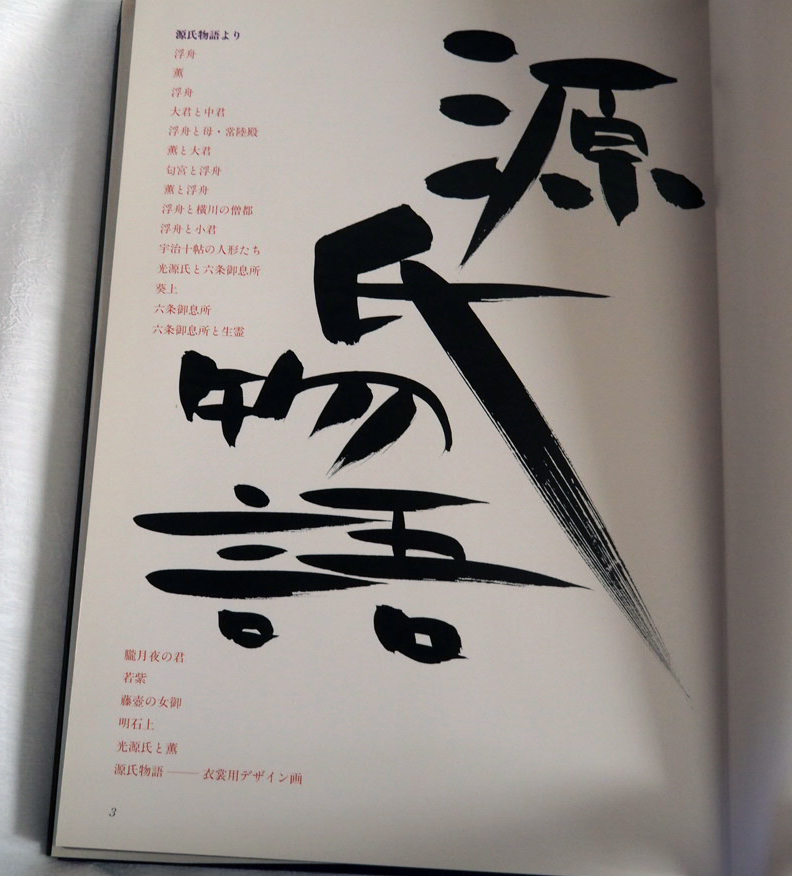 源氏物語より
浮舟
薫
浮舟
大君と中君
浮舟と母・常陸殿
薫と大君
匂宮と浮舟
薫と浮舟
浮舟と横川の僧都
浮舟と小君
宇治十帖の人形たち
光源氏と六条御息所
葵上
六条御息所
六条御息所と生霊
源氏物語
朧月夜の君
若紫
藤壺の女御
明石上
光源氏と薫
源氏物語——衣裳用デザイン画
3